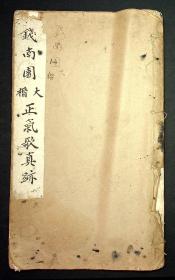 錢南園大楷正氣歌真跡